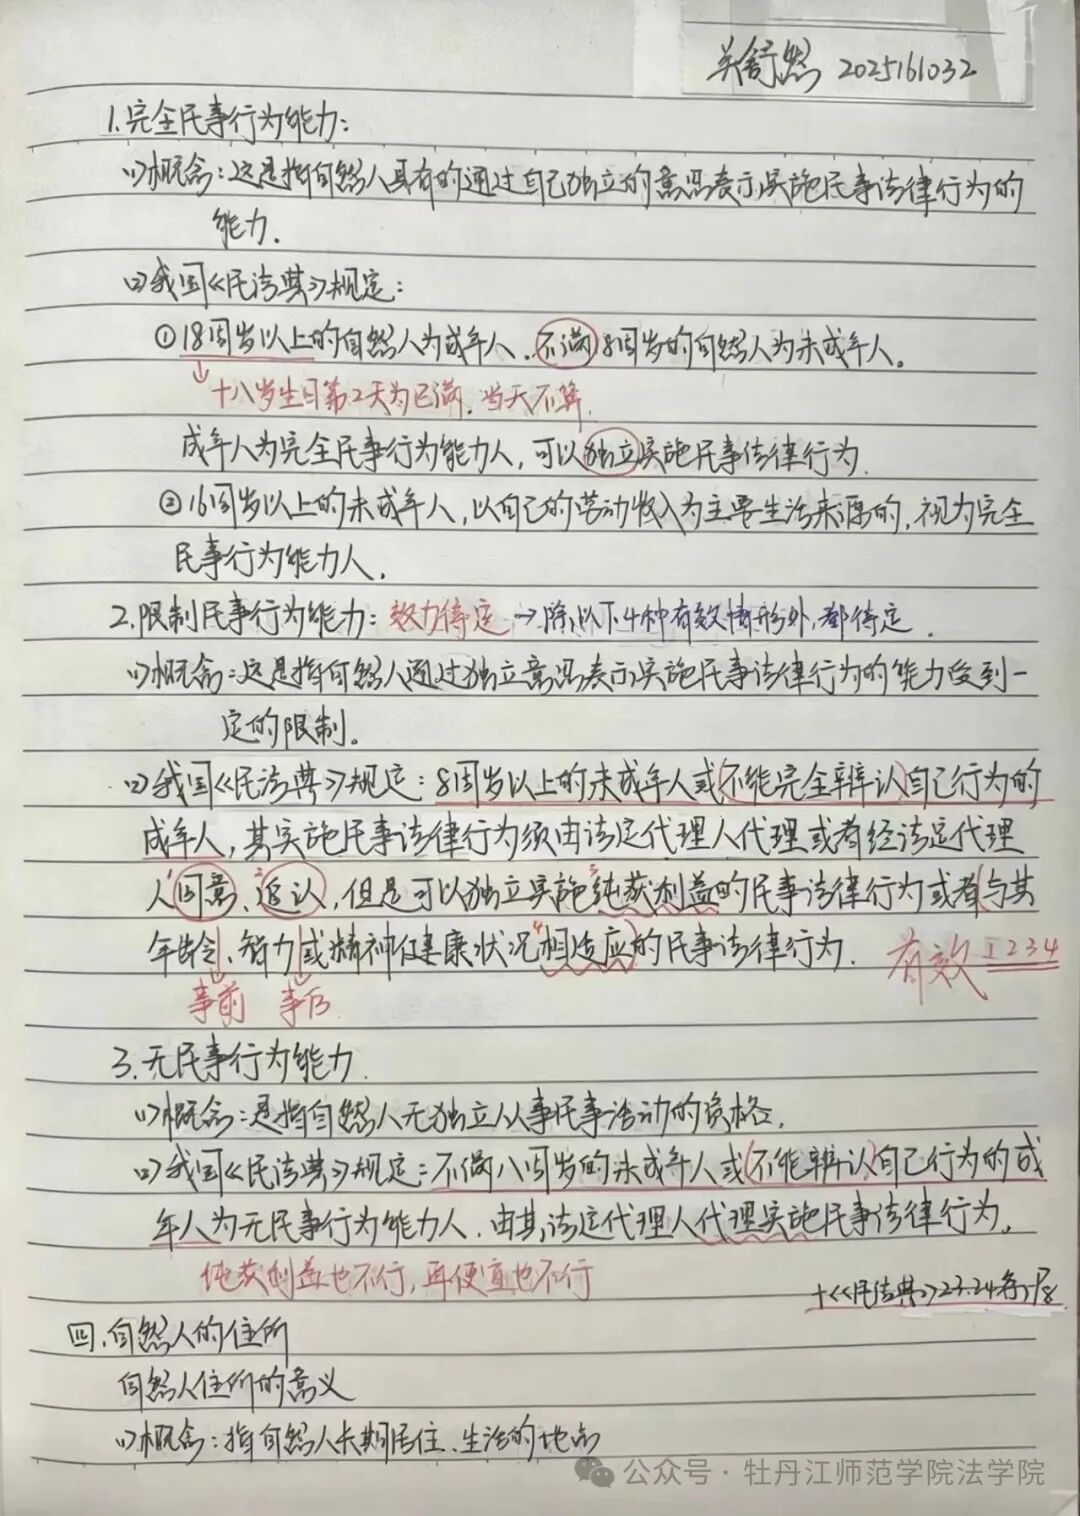 关舒然 2025161032
1.完全民事行为能力:
(1)概念:这是指自然人具有的通过自己独立的意思表示实施民事法律行为的
能力.
(2)我国《民法典》规定:
①18周岁以上的自然人为成年人.不满18周岁的自然人为未成年人。
↓十八岁生日第2天为已满.当天不算.
成年人为完全民事行为能力人,可以独立实施民事法律行为.
②16周岁以上的未成年人,以自己的劳动收入为主要生活来源的,视为完全
民事行为能力人.
2.限制民事行为能力:效力待定→除以下4种有效情形外,都待定.
(1)概念:这是指自然人通过独立意思表示实施民事法律行为的能力受到一
定的限制。
(2)我国《民法典》规定:8周岁以上的未成年人或(不能完全辨认)自己行为的
成年人,其实施民事法律行为须由法定代理人代理或者经法定代理
人1同意、2追认,但是可以独立实施3纯获利益的民事法律行为或者(与其
年龄、智力或精神健康状况4相适应)的民事法律行为. 有效1234
事前 事后
3.无民事行为能力.
(1)概念:是指自然人无独立从事民事活动的资格.
(2)我国《民法典》规定:不满八周岁的未成年人或(不能辨认)自己行为的成
年人为无民事行为能力人.由其法定代理人代理实施民事法律行为。
纯获利益也不行,再便宜也不行
+《民法典》23.24条
四.自然人的住所
自然人住所的意义
(1)概念:指自然人长期居住、生活的地点
公众号·牡丹江师范学院法学院